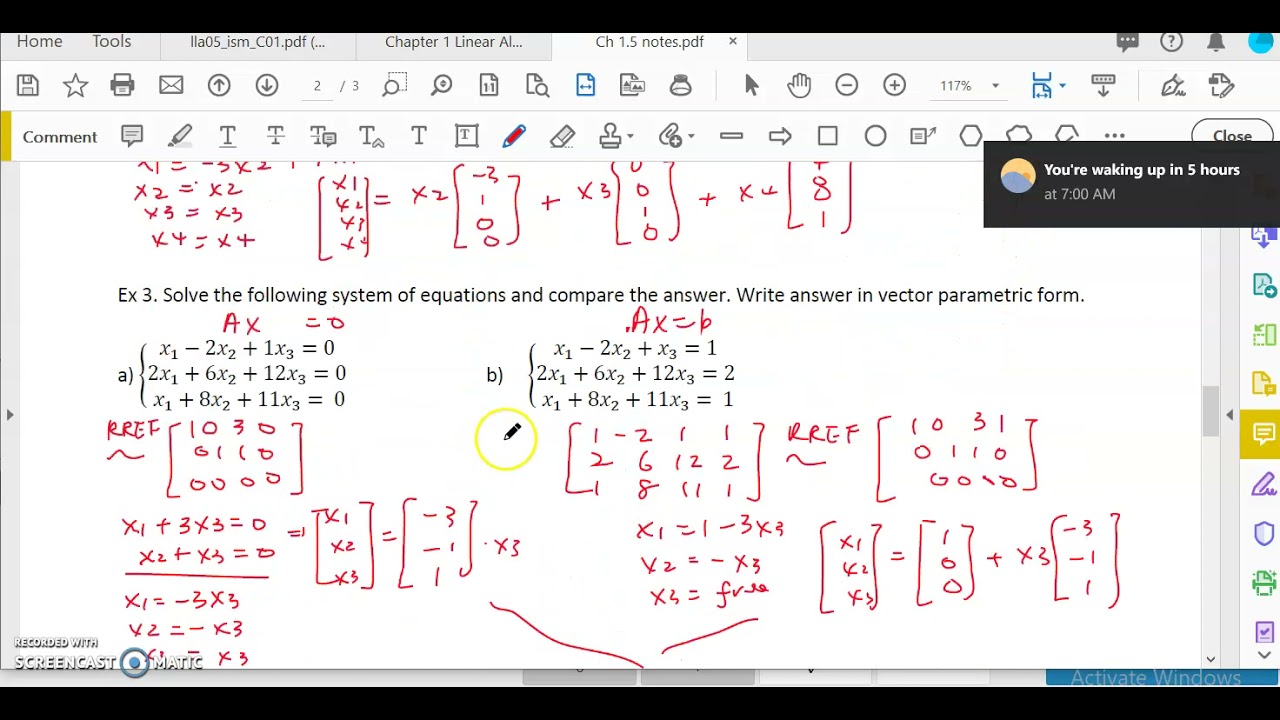 Home Tools lla05_ism_C01.pdf (... Chapter 1 Linear Al... Ch 1.5 notes.pdf ×
2 / 3 117%
Comment Close
You're waking up in 5 hours
at 7:00 AM
x1 = -3x2 +
x2 = x2
x3 = x3
x4 = x4
[x1 x2 x3 x4] = x2 [-3 1 0 0] + x3 [0 0 1 0] + x4 [ 8 1]
Ex 3. Solve the following system of equations and compare the answer. Write answer in vector parametric form.
Ax = 0
Ax = b
a) x₁ − 2x₂ + 1x₃ = 0
2x₁ + 6x₂ + 12x₃ = 0
x₁ + 8x₂ + 11x₃ = 0
b) x₁ − 2x₂ + x₃ = 1
2x₁ + 6x₂ + 12x₃ = 2
x₁ + 8x₂ + 11x₃ = 1
RREF ~
1 0 3 0
0 1 1 0
0 0 0 0
x1 + 3x3 = 0
x2 + x3 = 0
x1 = -3x3
x2 = -x3
= x3
=> [x1 x2 x3] = [-3 -1 1] · x3
1 -2 1 1
2 6 12 2
1 8 11 1
RREF ~
1 0 3 1
0 1 1 0
0 0 0 0
x1 = 1 - 3x3
x2 = -x3
x3 = free
[x1 x2 x3] = [1 0 0] + x3 [-3 -1 1]
RECORDED WITH
SCREENCAST MATIC
Activate Windows